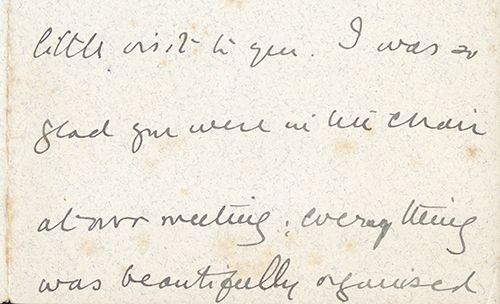 little visit to you. I was so
glad you were in the chair
at our meeting; everything
was beautifully organised